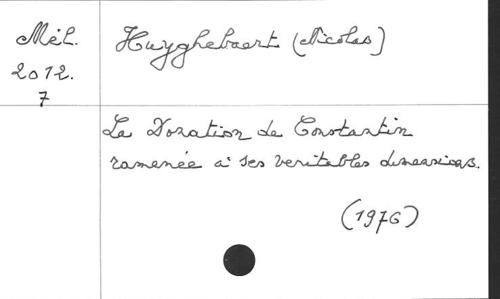 Mél.
2012.
7
Huyghebaert (Nicolas)
La Donation de Constantin
ramenée à ses veritables dimensions.
(1976)